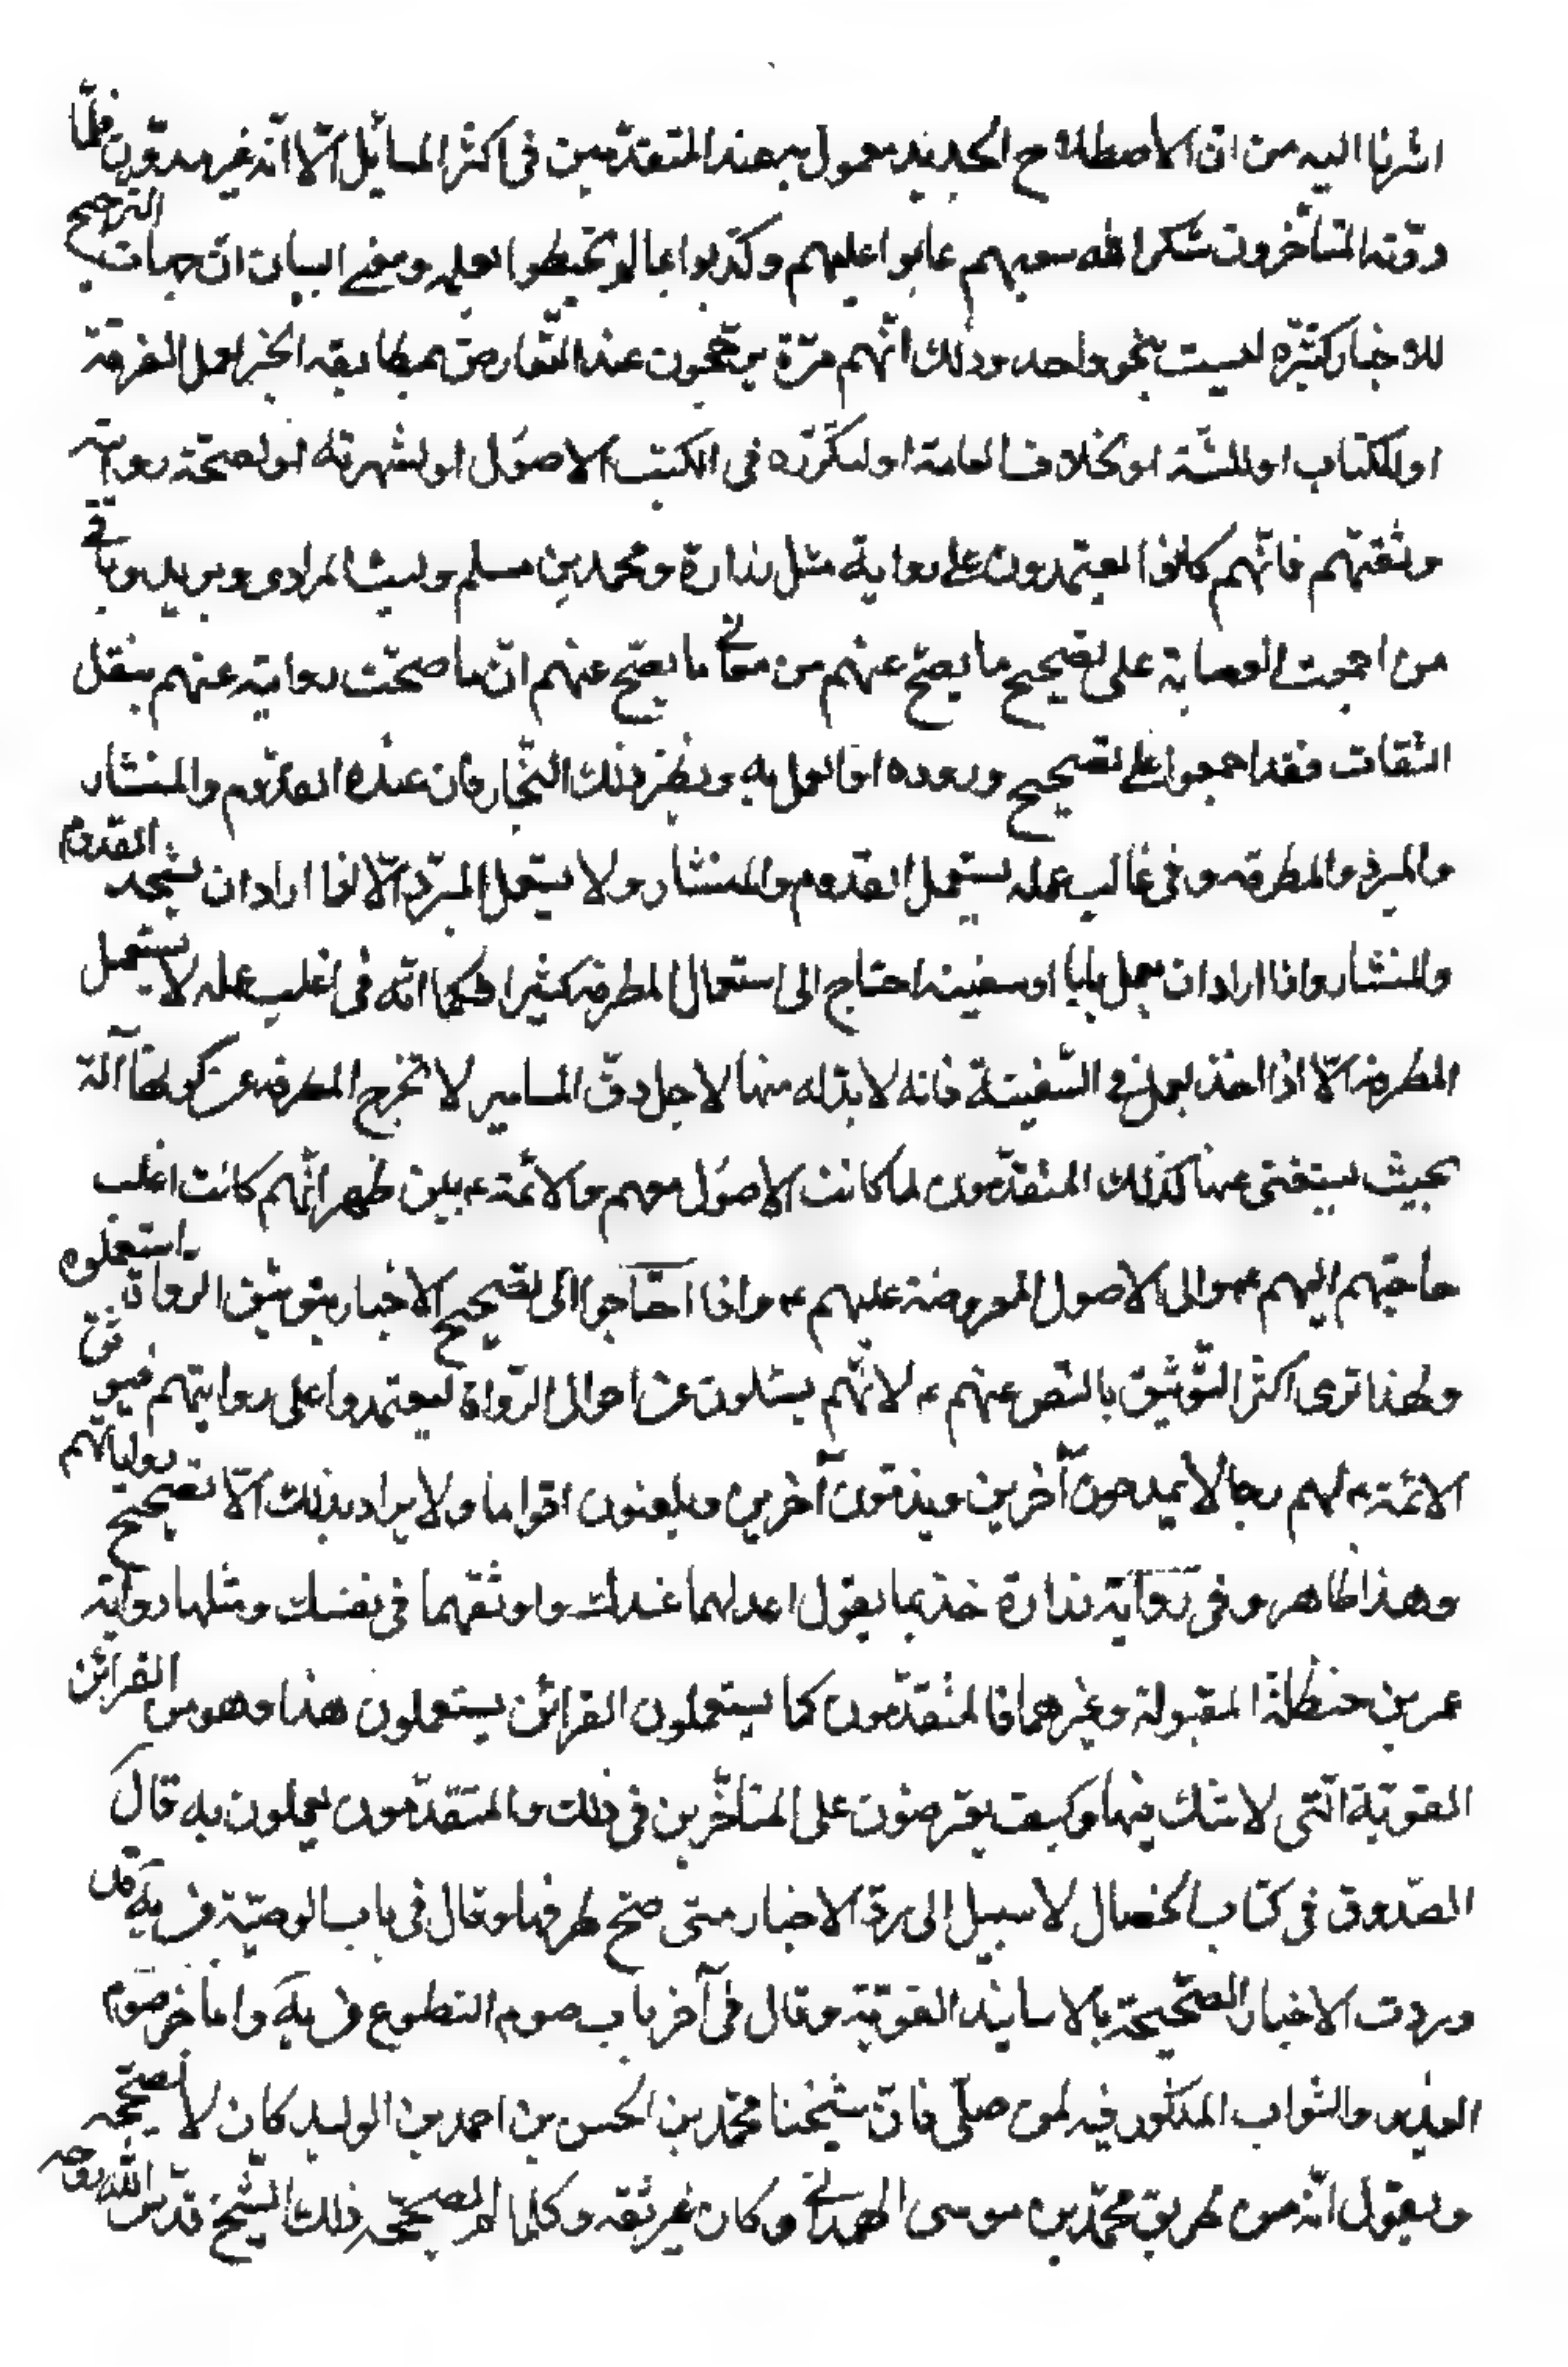 اشرنا اليه من ان الاصطلاح الجديد معمول به عند المتقدّمين فى اكثر المسائل الّا انّه غير مدوّن فلمّا
دوّنه المتأخّرون شكر الله سعيهم عابوا عليهم وكذّبوا بما لم يحيطوا بعلمه وينبغى البيان انّ جهات الترجيح
للاخبار كثيره ليست بنحو واحد وذلك انّهم مرّة يرجّحون عند التّعارض بمطابقه الخبر لعمل الفرقة
او للكتاب او للسّنة او بخلاف العامة او لتكرّره فى الكتب الاصوُل او لشهرته او لصحّة رواته
وثقتهم فانّهم كانوا يعتمدون على رواية مثل زرارة ومحمد بن مسلم وليث المرادى وبريد وباقى
من اجمعت العصابة على تصحيح ما يصحّ عنهم من معانى ما يصحّ عنهم انّ ما صحّت روايته عنهم بنقل
الثقات فقد اجمعوا على تصحيح وروده او العمل به ونظير ذلك النّجار فان عنده القدّوم والمنشار
والمبرد والمطرقه وفى غالب عمله يستعمل القدوم والمنشار ولا يستعمل المبرّد الّا اذا اراد ان يشحذ القدوم
والمنشار واذا اراد ان يعمل بابا او سفينة احتاج الى استعمال المطرقة كثيرا فكما انّه فى اغلب عمله لا يستعمل
المطرقة الّا اذا اخذ يعمل فى السّفينة فانه لا بدّ له منها لاجل دقّ المسامير لا تخرج المطرقه عن كونها آلة
بحيث يستغنى عنها كذلك المتقدّمون لما كانت الاصوُل معهم والائمّة ع بين ظهرانّهم كانت اغلب
حاجتهم اليهم ع والى الاصول المعروضة عليهم ع واذا احتاجوا الى تصحيح الاخبار بتوثيق الرّواة استعملوه
ولهذا ترى اكثر التّوثيق بالنّص عنهم ع لانّهم يسئلون عن احوال الرّواة ليعتمدوا على روايتهم فيوثق
الائمّة ع لهم رجالا يمدحون آخرين ويذمّون آخرين ويلعنون اقواما ولا يراد بذلك الّا تصحيح رواياتهم
وهذا ظاهر وفى رواية زرارة خذ بما يقول اعدلهما عندك واوثقهما فى نفسك ومثلها رواية
عمر بن حنظلة المقبولة وغيرهما فالمتقدّمون كما يستعملون القرائن يستعملون هذا وهو من القرائن
القويّة الّتى لا شك فيها وكيف يعترضون على المتأخّرين فى ذلك والمتقدّمون يعملون به قال
الصّدوق فى كتاب الخصال لا سبيل الى ردّ الاخبار متى صحّ طرقها وقال فى باب الوصيّة فى يه قد
وردت الاخبار الصّحيحة بالاسانيد القويّة وقال فى آخر باب صوم التطوع فى يه وامّا خبر صوم
الغدير والثواب المذكور فيه لمن صلّى فانّ شيخنا محمّد بن الحسن بن احمد بن الوليد كان لا يصحّحه
ويقول انّه من طريق محمّد بن موسى الهمدانى وكان غير ثقه وكلما لم يصحّحه ذلك الشّيخ قدّس الله روحه